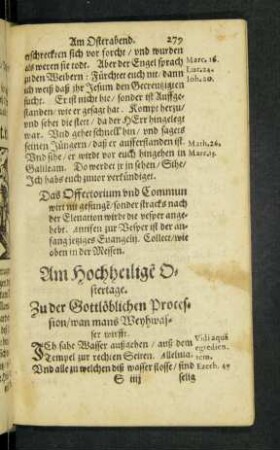 Am Osterabend. 279
erschrecken sich vor forcht / vnd wurden
als weren sie todt. Aber der Engel sprach Marc. 16.
zu den Weibern : Fürchtet euch nit / dann Luc. 24.
ich weiß daß jhr Jesum den Gecreutzigten Joh. 20.
sucht. Er ist nicht hie / sonder ist Auffge-
standen / wie er gesagt hat. Kompt herzu /
vnd sehet die stett / da der HErr hingelegt
war. Vnd gehet schnell hin / vnd sagets
seinen Jüngern / daß er aufferstanden ist. Math. 26.
Vnd sihe / er wirdt vor euch hingehen in Marc. 14.
Galileam. Do werdet jr jn sehen / Sihe /
Ich habs euch zuuor verkündiget.
Das Offertorium vnd Commun
wirt nit gesungē / sonder stracks nach
der Eleuation wirdt die vesper ange-
hebt. Antifen zur Vesper ist der an-
fang jetziges Euangelij. Collect / wie
oben in der Messen.
Am Hochheiligē O-
stertage.
Zu der Gottlöblichen Proces-
sion / wan mans Weyhwas-
ser wirfft.
ICh sahe Wasser außgehen / auß dem Vidi aquā
Tempel zur rechten Seiten. Alleluia. egredien-
tem.
Vnd alle zu welchen diß wasser flosse / sind Ezech. 47
S iij selig